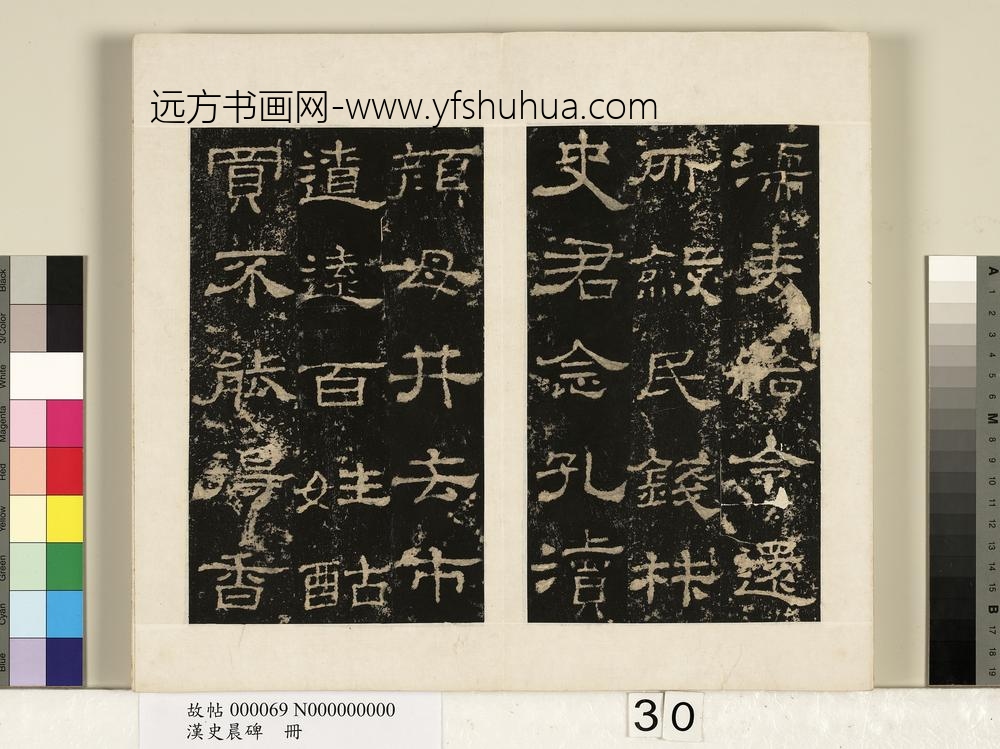 远方书画网-www.yfshuhua.com
渠表給令還
所斂民錢材
史君念孔瀆
顏母井去市
遼遠百姓酤
買不能得香
故帖 000069 N000000000
漢史晨碑 冊
30
Black
3/Color
White
Magenta
Red
Yellow
Green
Cyan
Blue
A
1
2
3
4
5
6
M
8
9
10
11
12
13
14
15
B
17
18
19